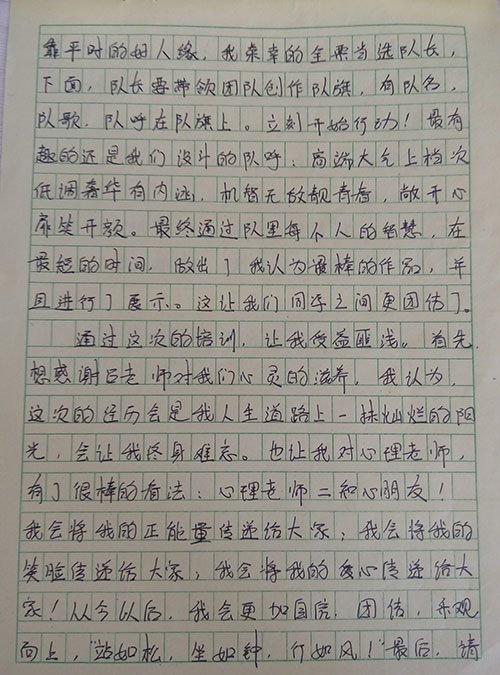 靠平时的好人缘，我荣幸的全票当选队长，
下面，队长要带领团队创作队旗，有队名，
队歌，队呼在队旗上。立刻开始行动！最有
趣的还是我们设计的队呼：高端大气上档次
低调奢华有内涵，机智无敌靓青春，敞开心
扉笑开颜。最终通过队里每个人的智慧，在
最短的时间，做出了我认为最棒的作品，并
且进行了展示。这让我们同学之间更团结了。
通过这次的培训，让我受益匪浅。首先，
想感谢吕老师对我们心灵的滋养，我认为，
这次的经历会是我人生道路上一抹灿烂的阳
光，会让我终身难忘。也让我对心理老师，
有了很棒的看法：心理老师=知心朋友！
我会将我的正能量传递给大家；我会将我的
笑脸传递给大家；我会将我的爱心传递给大
家！从今以后，我会更加自信，团结，乐观
向上，“站如松，坐如钟，行如风！”最后，请